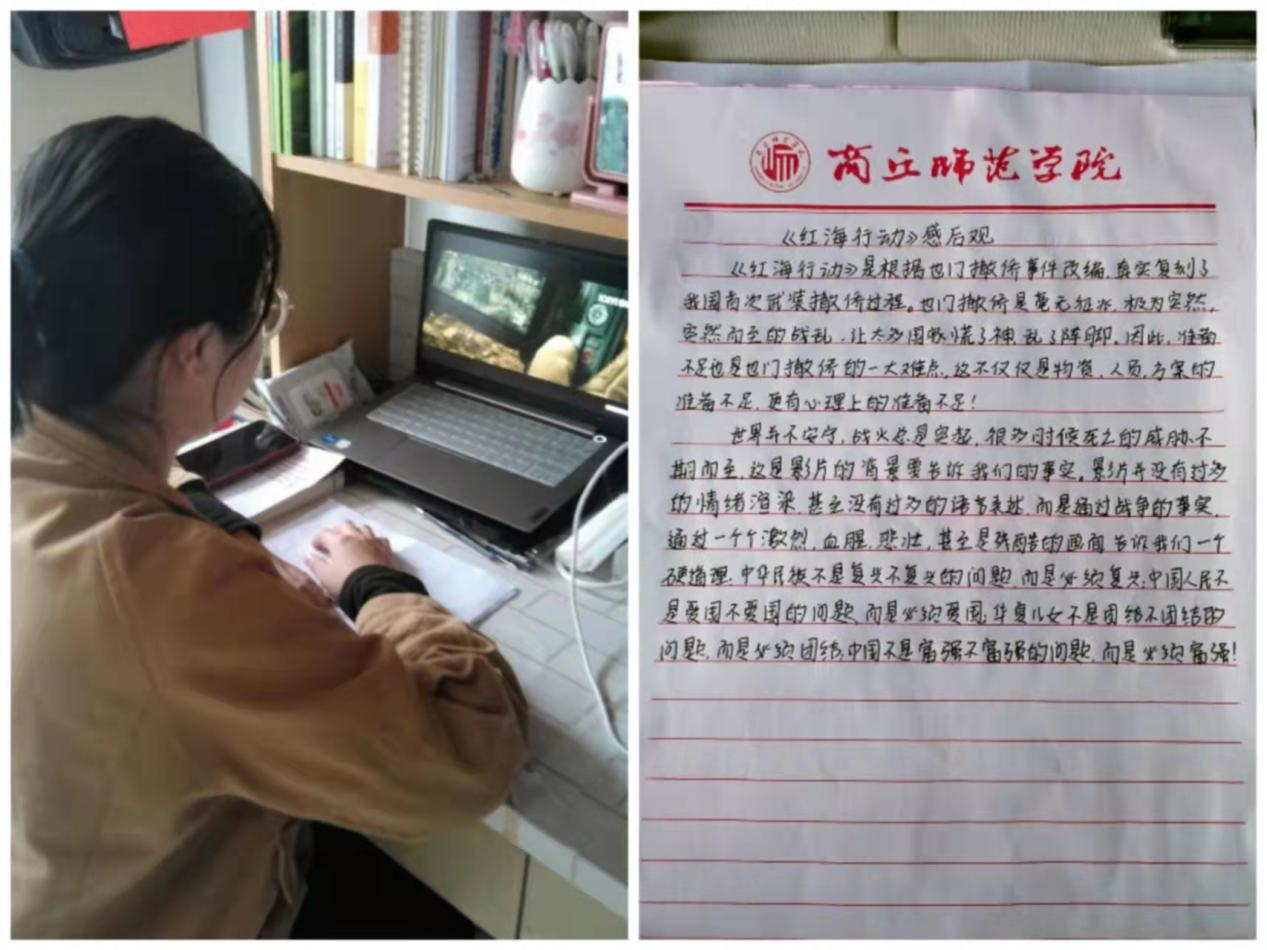 商丘师范学院
《红海行动》感后观
《红海行动》是根据也门撤侨事件改编，真实复刻了
我国首次武装撤侨过程。也门撤侨是毫无征兆，极为突然，
突然而至的战乱，让大多国家慌了神，乱了阵脚。因此，准备
不足也是也门撤侨的一大难点，这不仅仅是物资，人员，方案的
准备不足，更有心理上的准备不足！
世界并不安宁，战火总是突起，很多时候死亡的威胁不
期而至，这是影片的背景要告诉我们的事实。影片并没有过多
的情绪渲染，甚至没有过多的语言表述，而是通过战争的事实，
通过一个个激烈，血腥，悲壮，甚至是残酷的画面告诉我们一个
硬道理：中华民族不是复兴不复兴的问题，而是必须复兴；中国人民不
是爱国不爱国的问题，而是必须爱国；华夏儿女不是团结不团结的
问题，而是必须团结；中国不是富强不富强的问题，而是必须富强！